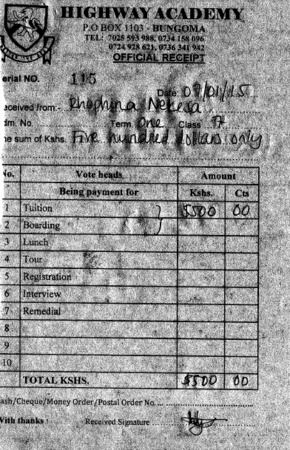 HIGHWAY ACADEMY
P.O BOX 1103 - BUNGOMA
TEL: 7028 593 988, 0734 158 096
0724 928 621, 0736 341 942
OFFICIAL RECEIPT
erial NO. 115
Date: 09/01/15
eceived from:- Rhophina Nekesa
dm. No. Term One Class
he sum of Kshs. Five hundred dollars only
No. Vote heads Amount
Being payment for Kshs. Cts
1 Tuition $500 00
2 Boarding
3 Lunch
4 Tour
5 Registration
6 Interview
7 Remedial
8
9
10
TOTAL KSHS. $500 00
ash/Cheque/Money Order/Postal Order No....
With thanks! Received Signature